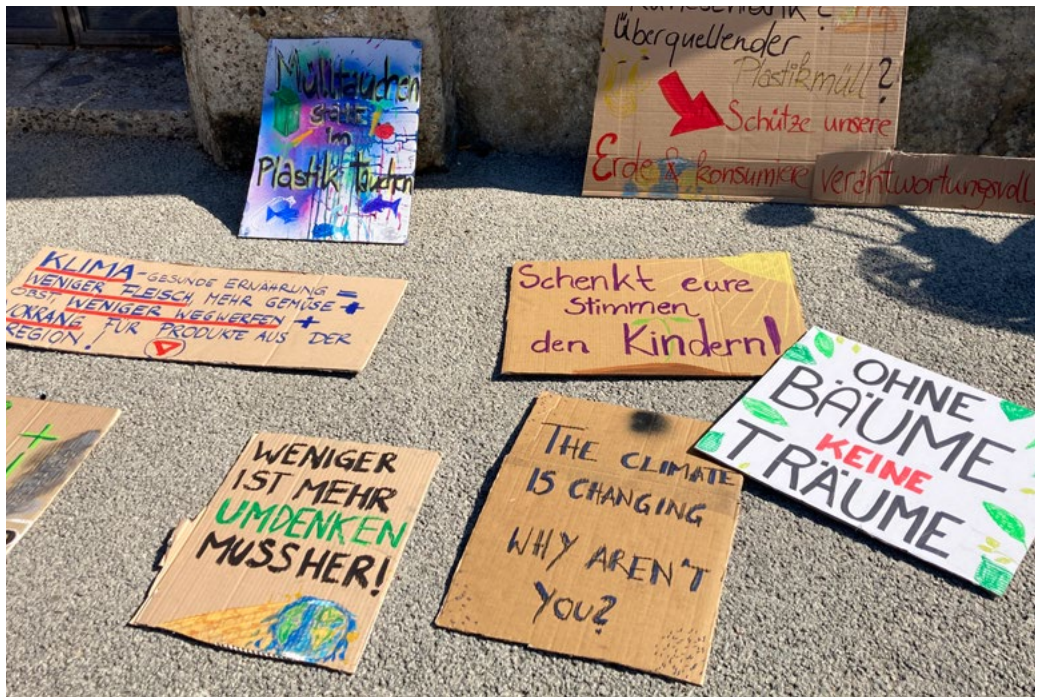 Mülltauchen
statt
im
Plastik tauchen
Überquellender
Plastikmüll?
Schütze unsere
Erde & konsumiere verantwortungsvoll
KLIMA-GESUNDE ERNÄHRUNG =
WENIGER FLEISCH, MEHR GEMÜSE +
OBST, WENIGER WEGWERFEN +
VORRANG FÜR PRODUKTE AUS DER
REGION!
Schenkt eure
Stimmen
den Kindern!
OHNE
BÄUME
KEINE
TRÄUME
WENIGER
IST MEHR
UMDENKEN
MUSS HER!
THE CLIMATE
IS CHANGING
WHY AREN'T
YOU?